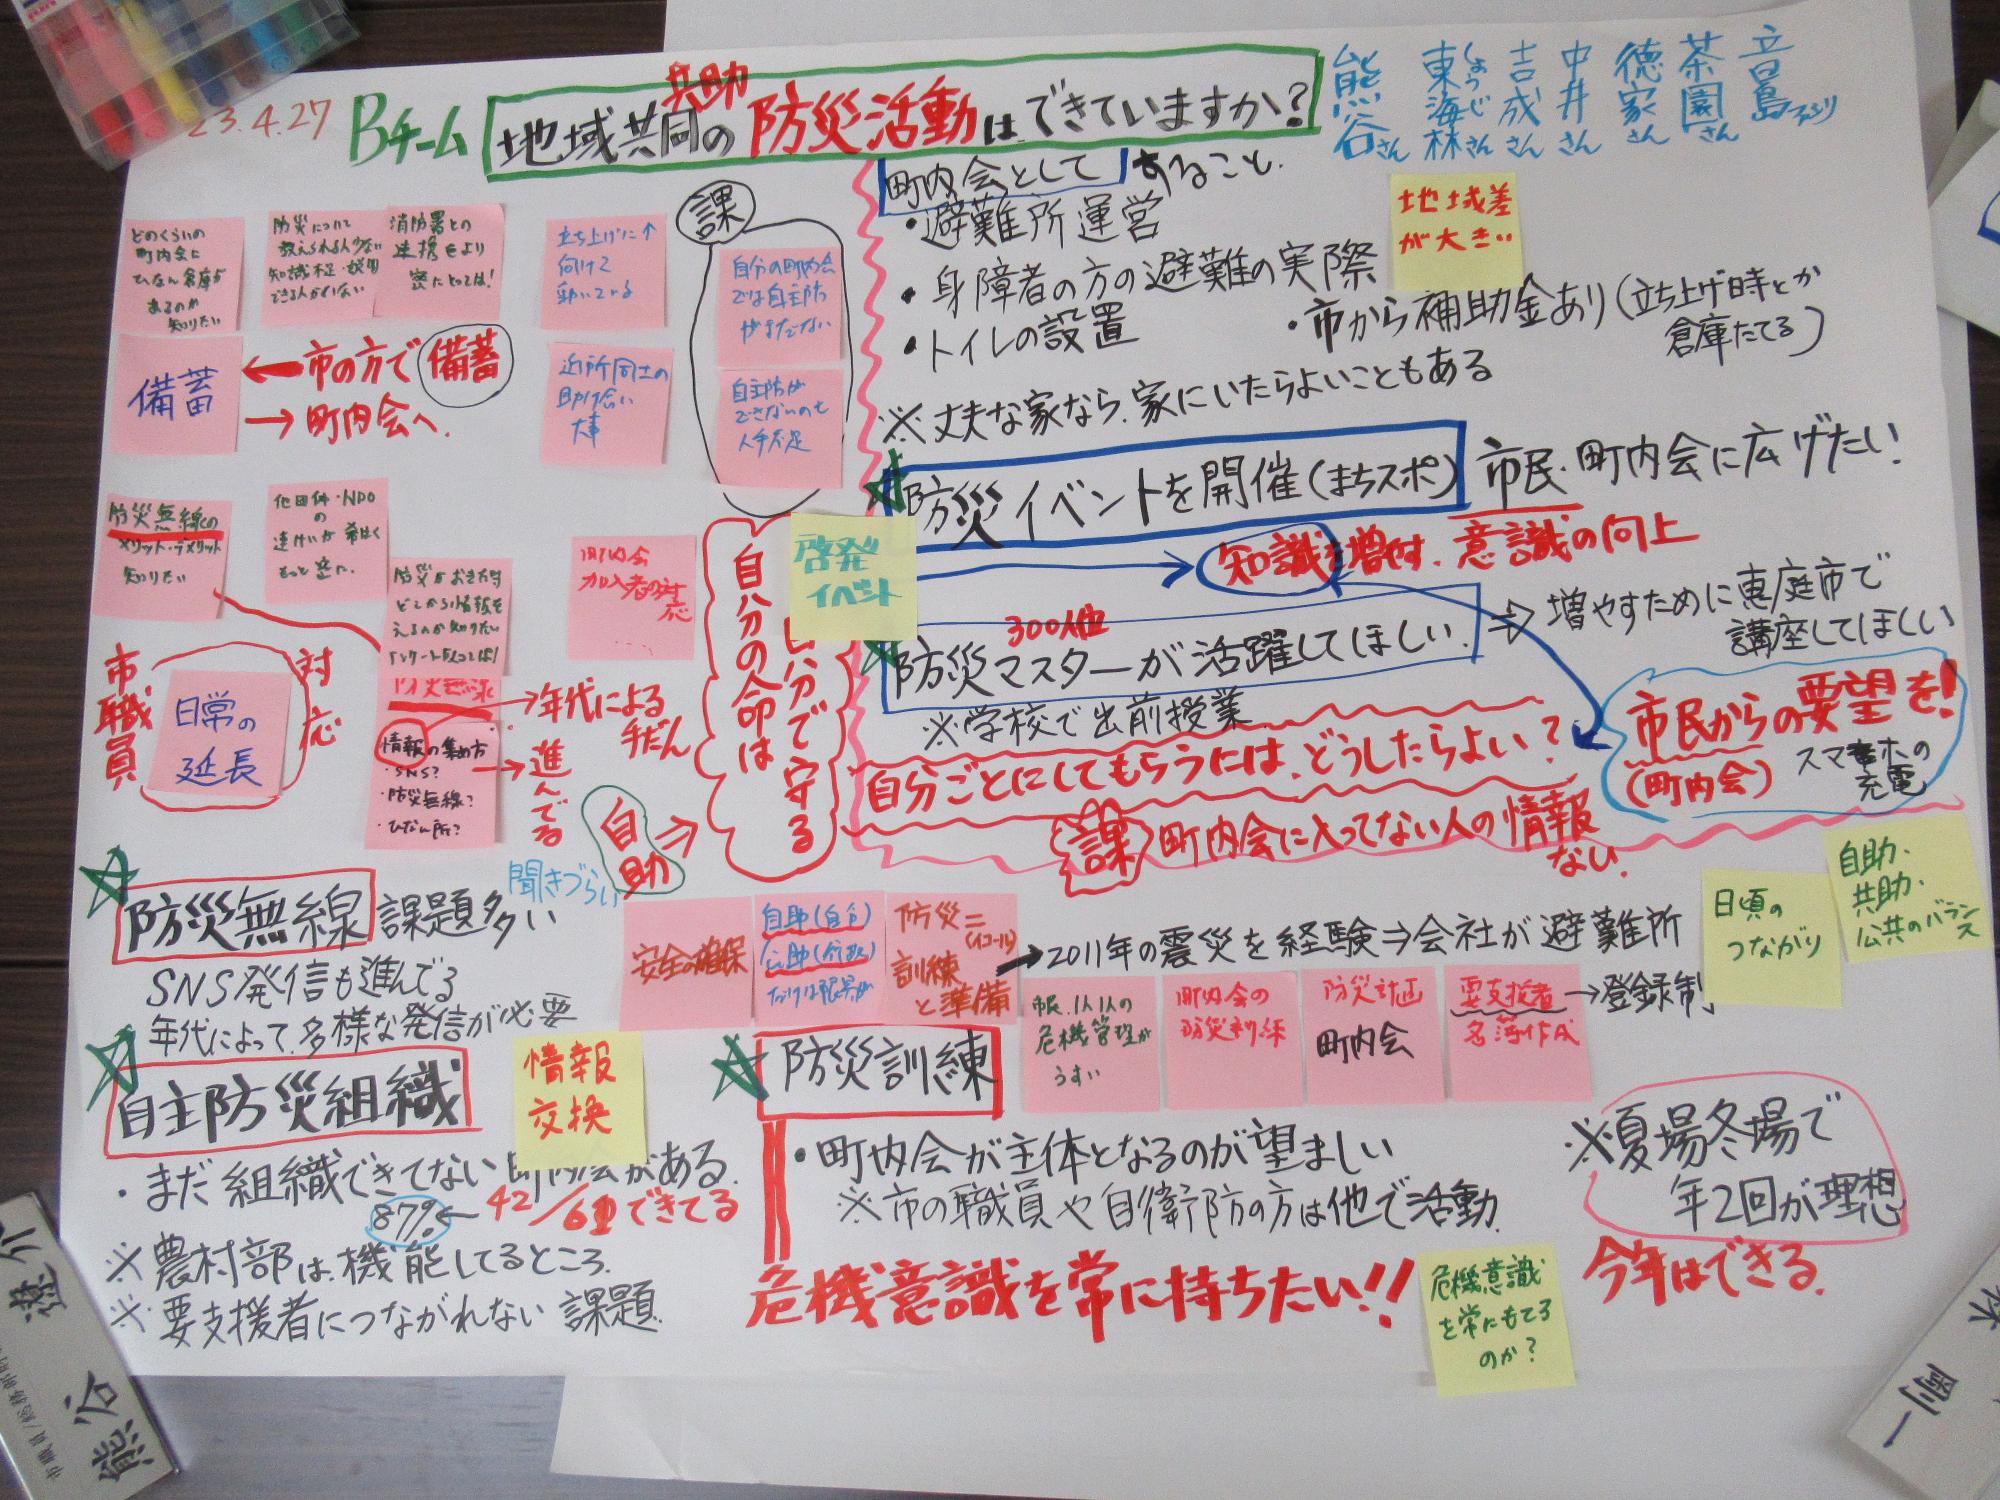 23.4.27
Bチーム
共助
地域共同の防災活動はできていますか?
熊谷さん
しょうじ
東海林さん
吉成さん
中井さん
徳家さん
茶園さん
音島
どのくらいの
町内会に
ひなん倉庫が
あるのか
知りたい
防災について
教えられる人少ない
知識不足・説明
できる人がいない
消防署との
連携をより
密にとっては!
立ち上げに↑
向けて
動いている
課
自分の町内会
では自主防
やまだでない
自主防が
できないのも
人手不足
備蓄
←市の方で備蓄
→町内会へ.
近所同士の
助け合い
大事
防災無線の
メリット・デメリット
知りたい
他団体・NPO
の
連けいが希はく
もっと密に.
防災がおきた時
どこから情報を
えるのか知りたい
防災無線
町内会
加入者の対応
情報の集め方
・SNS?
・防災無線?
・ひなん所?
→年代による
手だん
→進んでる
市職員
日常の
延長
対応
自助
⇒
自分の命は
自分で守る
啓発
イベント
町内会として あること.
・避難所運営
・身障者の方の避難の実際
・トイレの設置
地域差
が大きい
・市から補助金あり(立ち上げ時とか
倉庫たてる)
※丈夫な家なら、家にいたらよいこともある
防災イベントを開催(まちスポ) 市民・町内会に広げたい!
知識を増やす、意識の向上
300人位
防災マスターが活躍してほしい.
⇒増やすために恵庭市で
講座してほしい
※学校で出前授業
自分ごとにしてもらうには、どうしたらよい?
市民からの要望を!
(町内会)
スマホの
充電
課 町内会に入ってない人の情報
ない.
防災無線 課題多い
聞きづらい
SNS発信も進んでる
年代によって、多様な発信が必要
安全の確保
自助(自分)
公助(行政)
だけは限界が
防災=
(イコール)
訓練
と準備
→2011年の震災を経験⇒会社が避難所
日頃の
つながり
自助・
共助・
公共のバランス
市民、1人1人の
危機管理が
うすい
町内会の
防災訓練
防災計画
町内会
要支援者
名簿作成
→登録制
自主防災組織
情報
交換
・まだ組織できてない町内会がある.
87%← 42/61できてる
※農村部は、機能してるところ.
※要支援者につながれない課題.
防災訓練
・町内会が主体となるのが望ましい
※市の職員や自衛防の方は他で活動.
危機意識を常に持ちたい!!
危機意識
を常にもてる
のか?
※夏場冬場で
年2回が理想
今年はできる.
熊谷
剛一